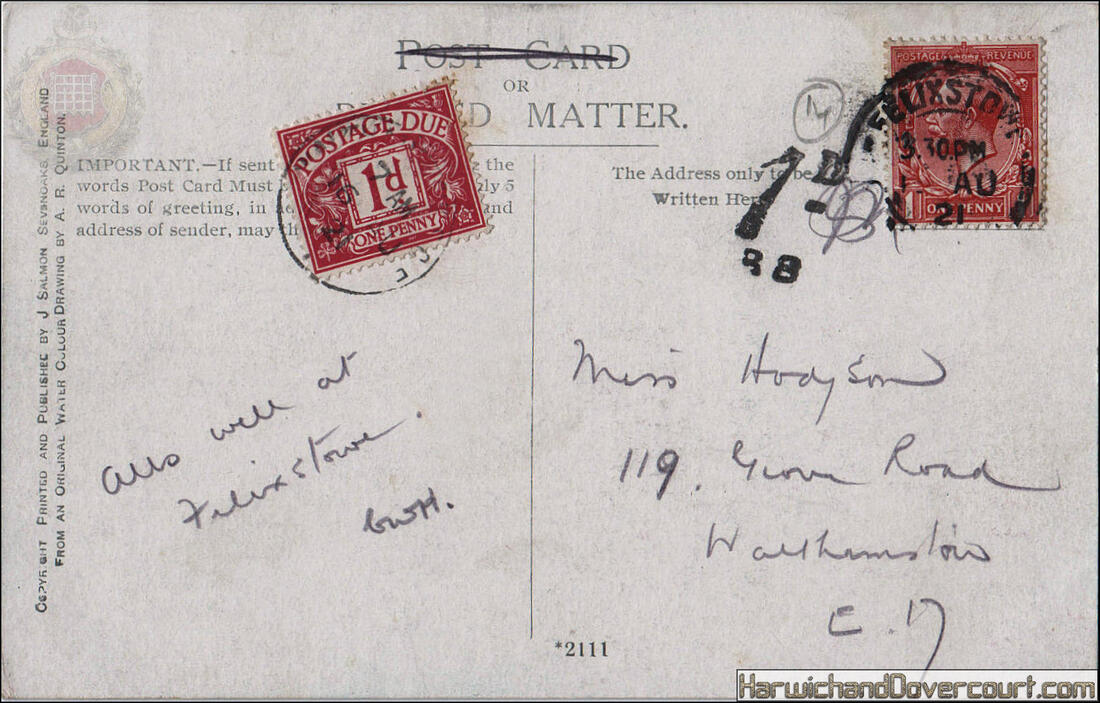 POST CARD
OR
D MATTER.
IMPORTANT.—If sent the
words Post Card Must ly 5
words of greeting, in and
address of sender, may th
The Address only to be
Written Her
COPYRIGHT PRINTED AND PUBLISHED BY J SALMON SEVENOAKS ENGLAND
FROM AN ORIGINAL WATER COLOUR DRAWING BY A. R. QUINTON.
POSTAGE DUE
1d
ONE PENNY
POSTAGE REVENUE
ONE PENNY
FELIXSTOWE
3.30 PM
1 AU
21
4
1D
88
Alls well at
Felixstowe.
GWH.
Miss Hodgson
119. Grove Road
Walthamstow
E.17
*2111
HarwichandDovercourt.com